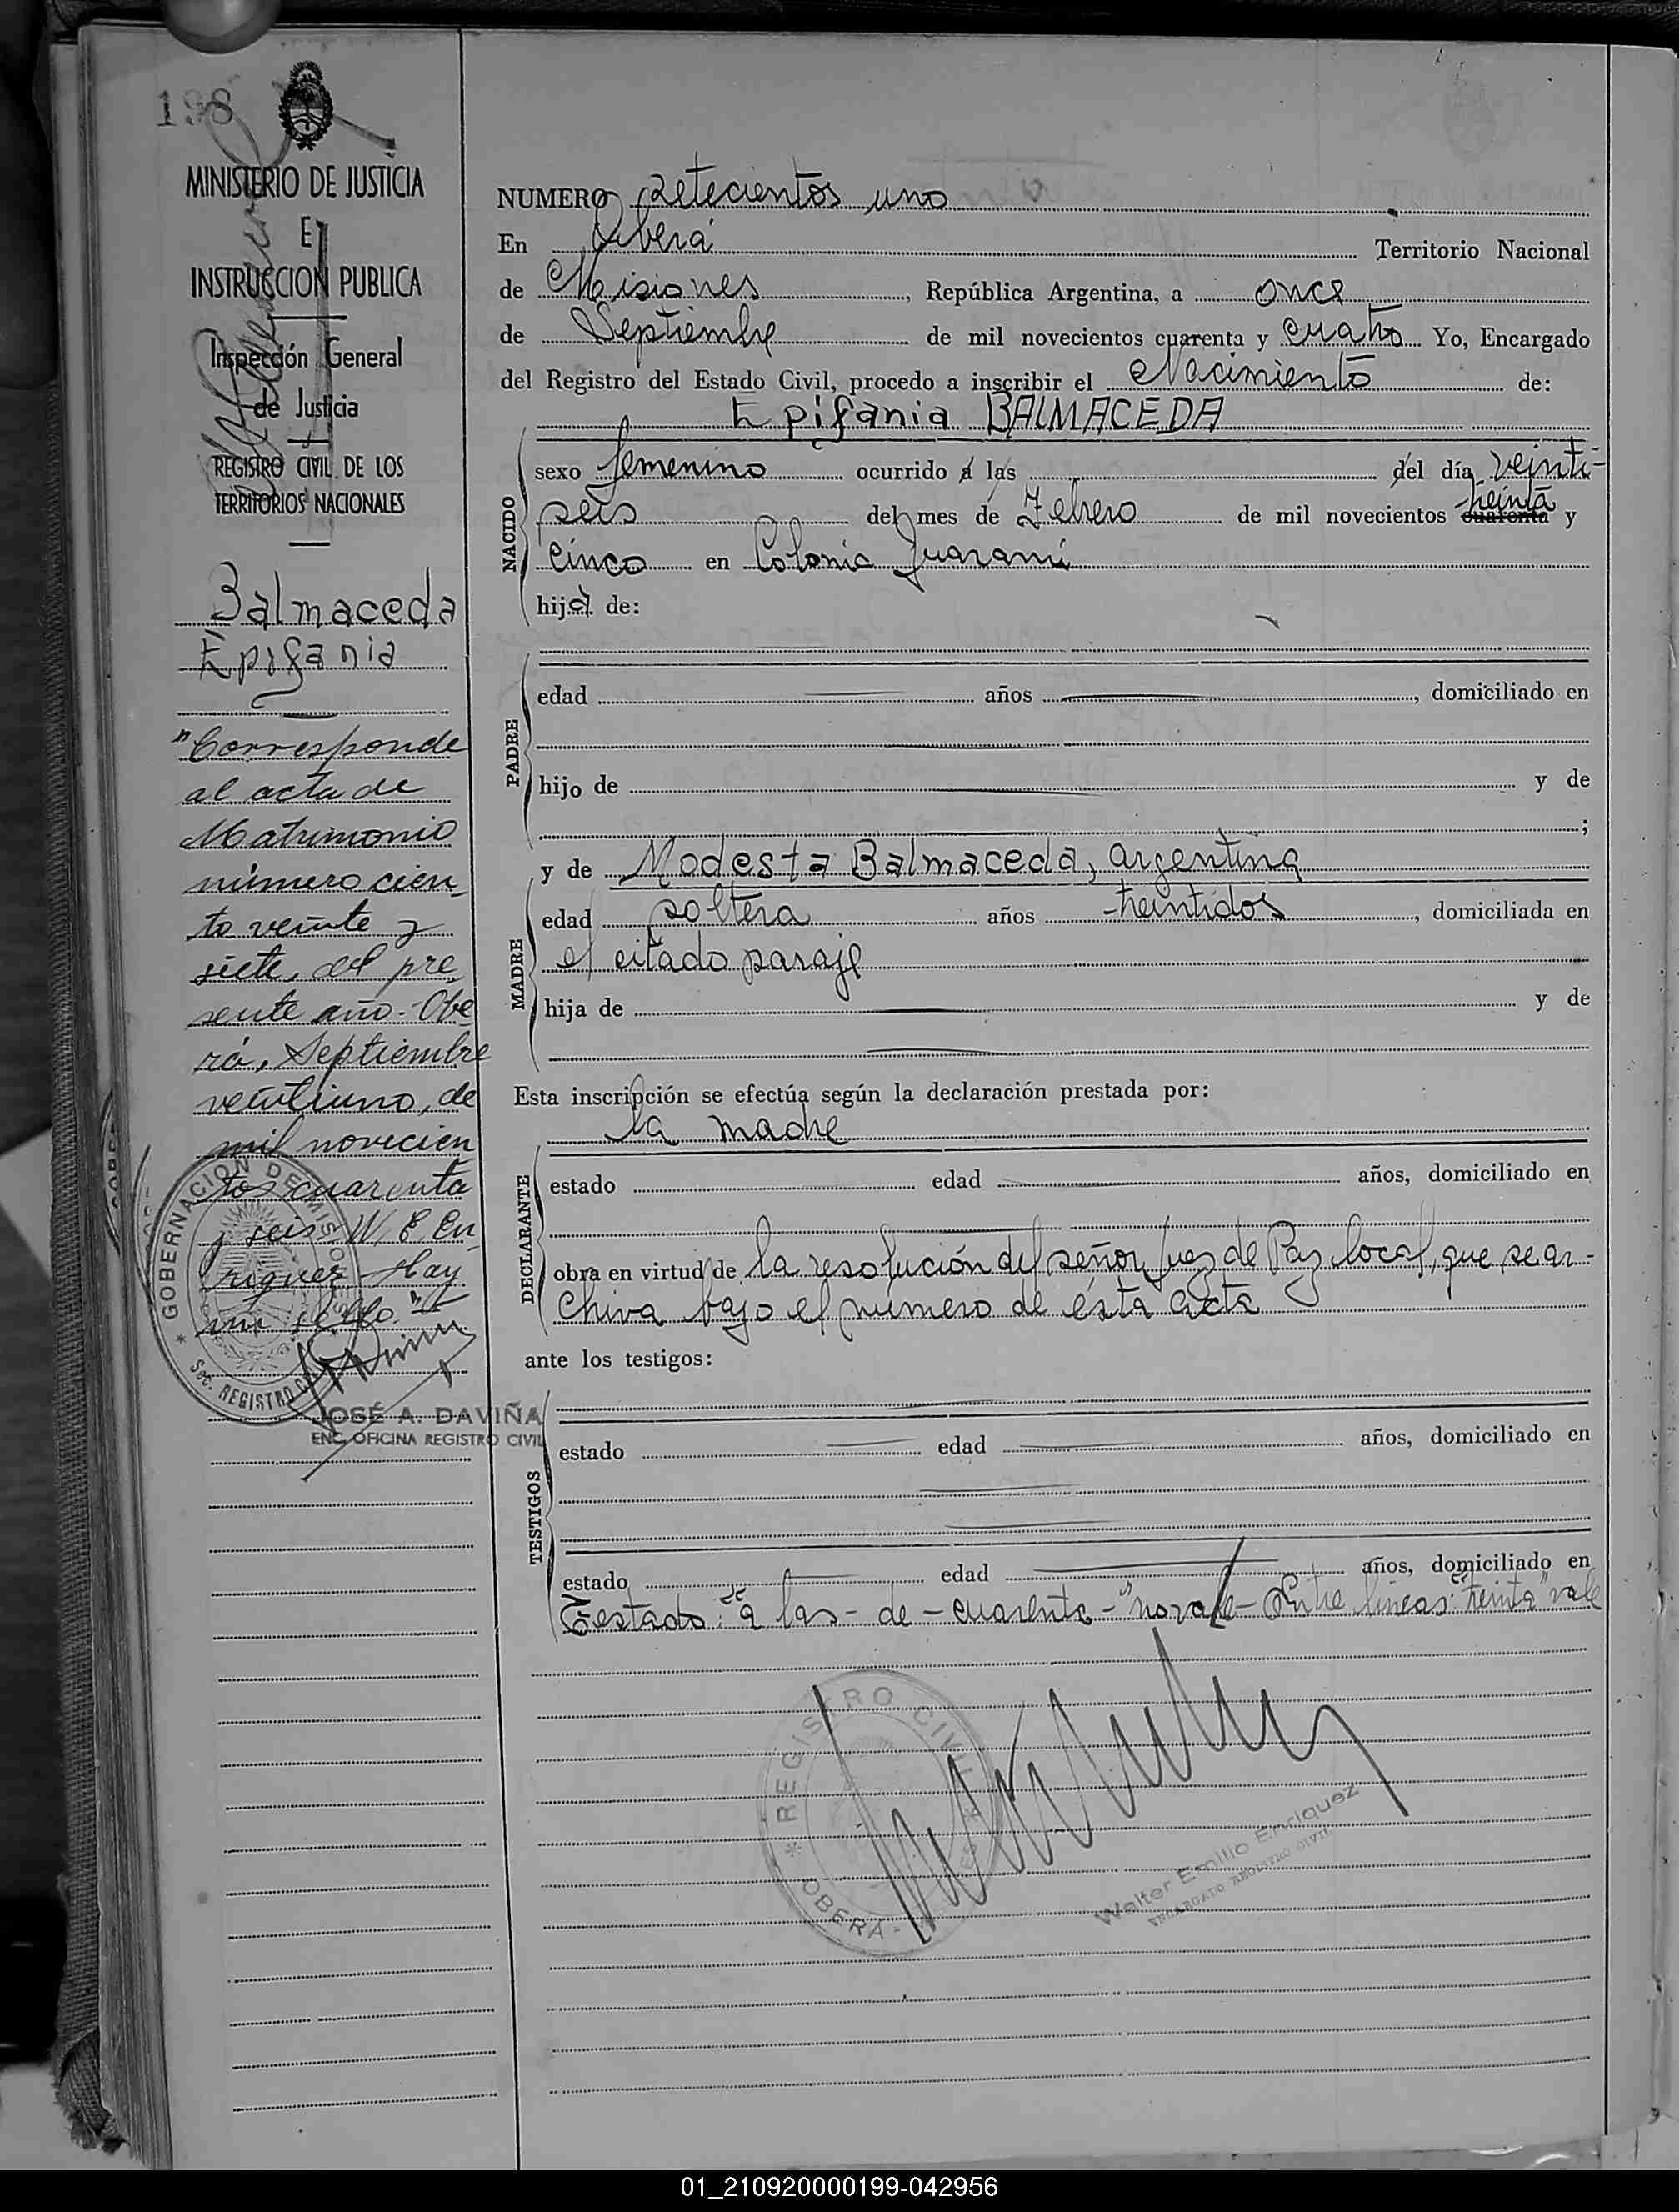 198
MINISTERIO DE JUSTICIA
E
INSTRUCCION PUBLICA
Inspección General
de Justicia
REGISTRO CIVIL DE LOS
TERRITORIOS NACIONALES
Balmaceda
Epifania
"Corresponde
al acta de
Matrimonio
número cien
to veinte y
siete, del pre
sente año.- Obe
rá, Septiembre
veintiuno, de
mil novecien
tos cuarenta
y seis W. E. En
riquez - Hay
un sello."
GOBERNACION DE MISIONES
Sec. REGISTRO
JOSÉ A. DAVIÑA
ENC. OFICINA REGISTRO CIVIL
NUMERO setecientos uno
En Oberá Territorio Nacional
de Misiones, República Argentina, a once
de Septiembre de mil novecientos cuarenta y cuatro Yo, Encargado
del Registro del Estado Civil, procedo a inscribir el Nacimiento de:
Epifania BALMACEDA
NACIDO
sexo femenino ocurrido a las del día veinti-
seis del mes de Febrero de mil novecientos cuarenta treinta y
cinco en Colonia Guaraní
hija de:
PADRE
edad años, domiciliado en
hijo de y de
;
y de Modesta Balmaceda, argentina
MADRE
edad soltera años treintidos, domiciliada en
el citado paraje
hija de y de
Esta inscripción se efectúa según la declaración prestada por:
la madre
DECLARANTE
estado edad años, domiciliado en
obra en virtud de la resolución del señor Juez de Paz local, que se ar-
chiva bajo el número de esta acta
ante los testigos:
TESTIGOS
estado edad años, domiciliado en
estado edad años, domiciliado en
Testado: "a las - de - cuarenta -" no vale - Entre líneas: "treinta" vale
REGISTRO CIVIL
OBERA
Walter Emilio Enriquez
ENCARGADO REGISTRO CIVIL
01_210920000199-042956